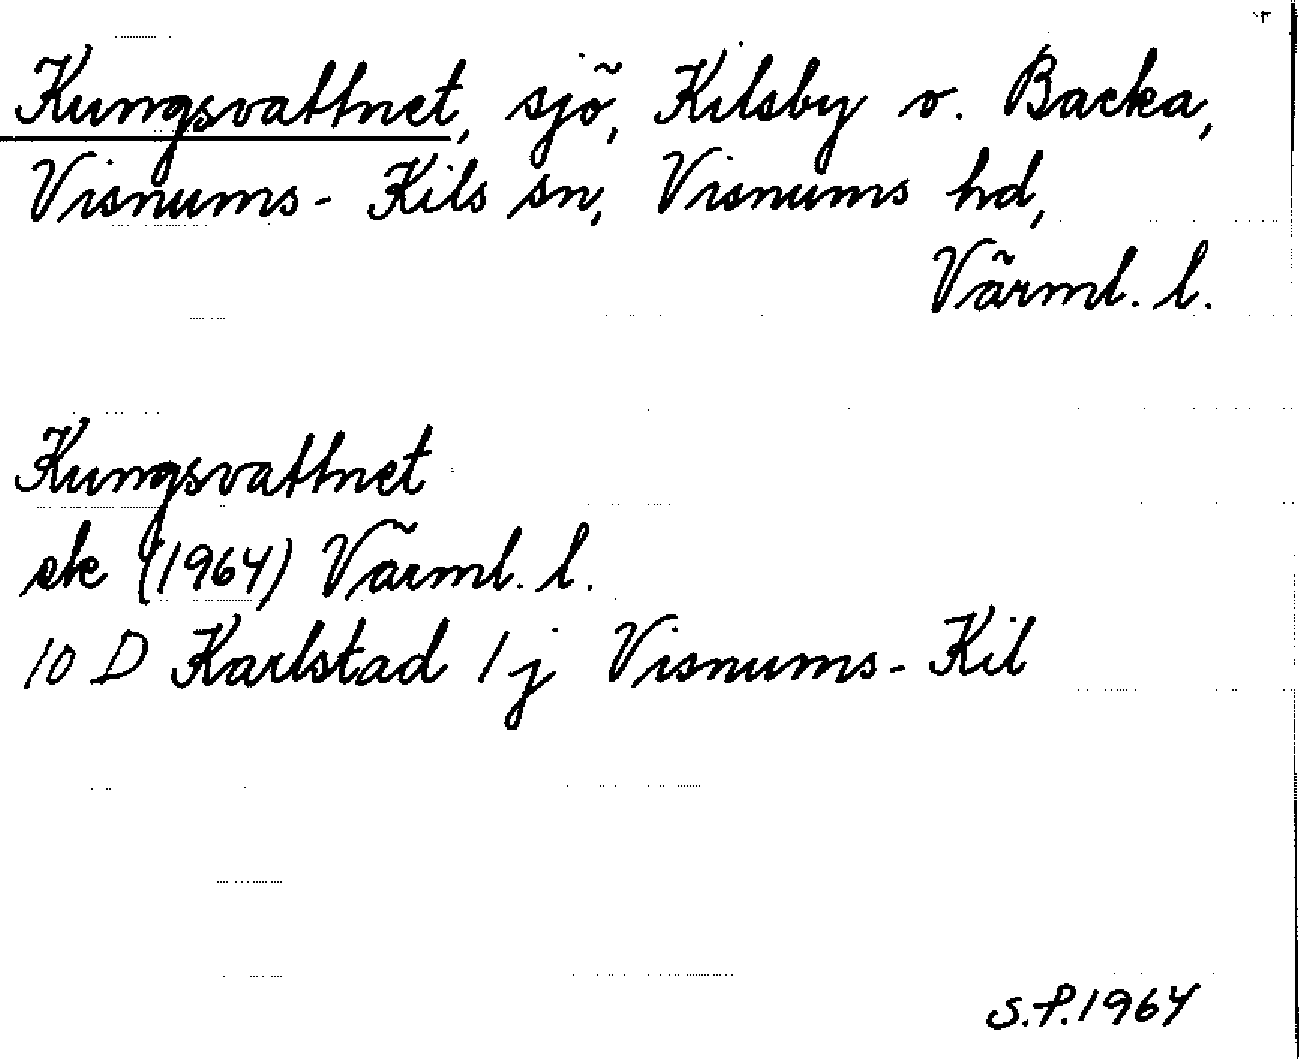 Kungsvattnet, sjö, Kilsby o. Backa,
Visnums-Kils sn, Visnums hd,
Värml. l.
Kungsvattnet
ek (1964) Värml. l.
10 D Karlstad 1 j Visnums-Kil
S.P. 1964